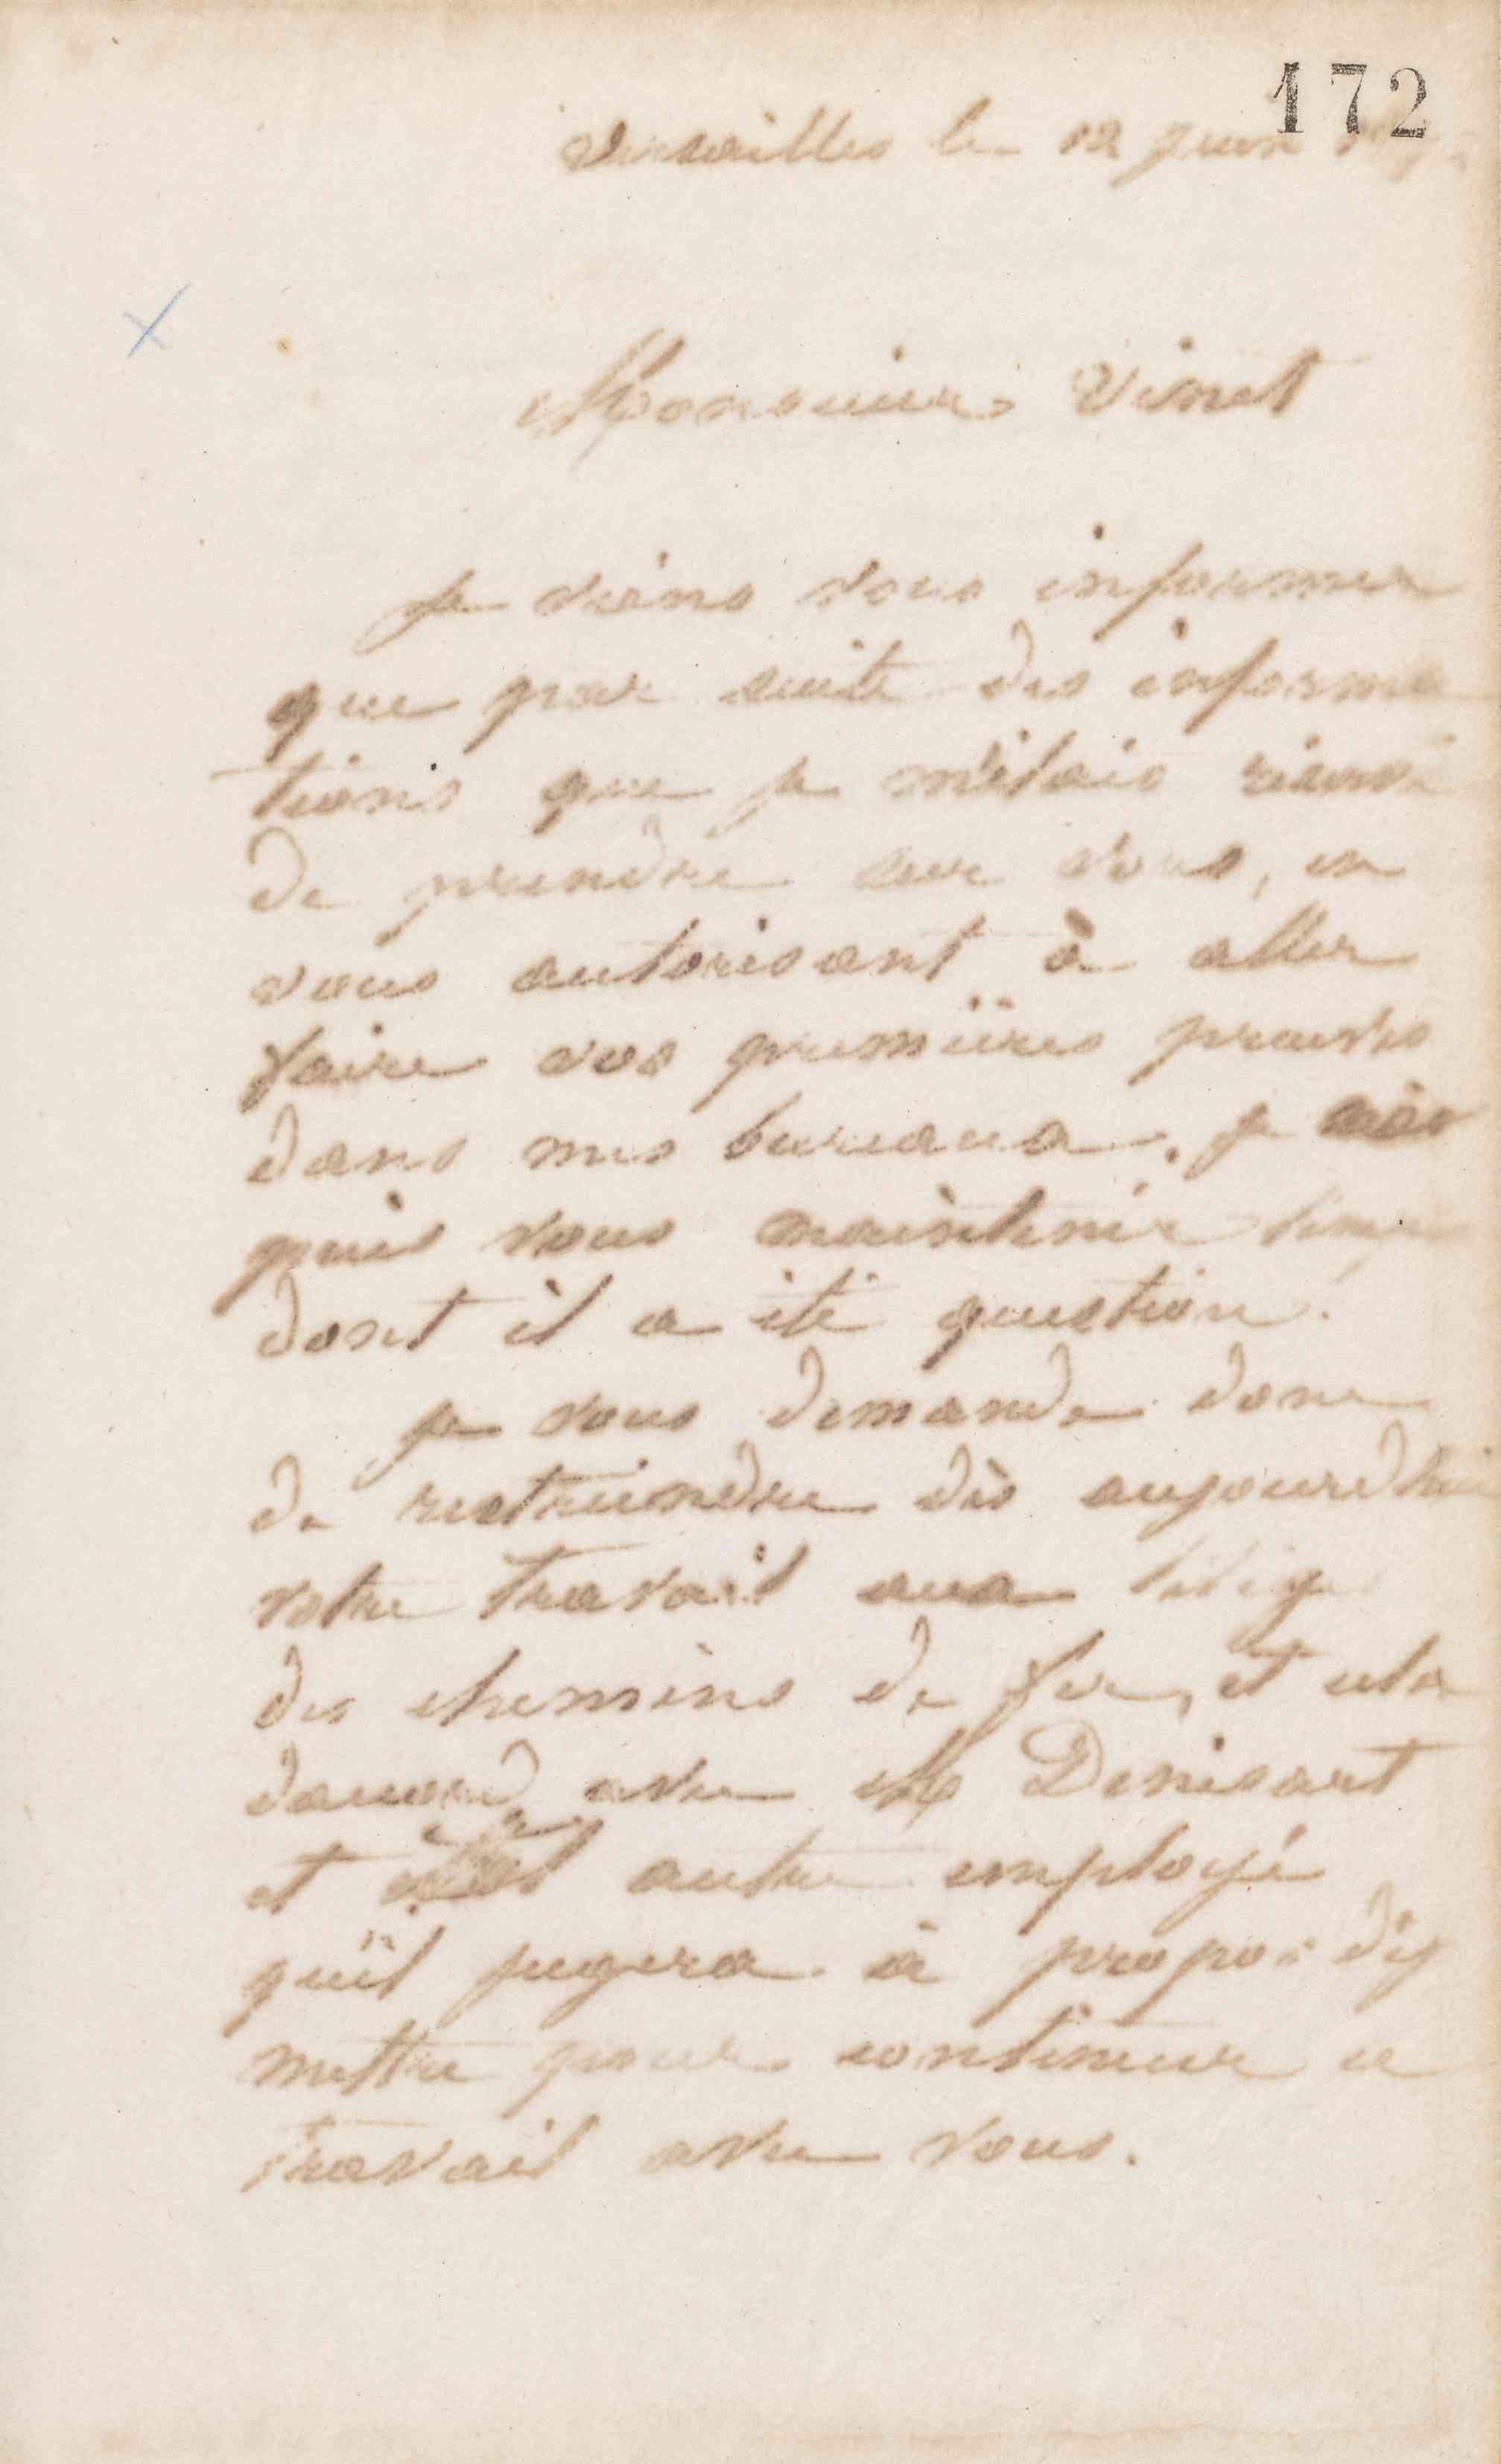 172
Versailles le 12 juin
Monsieur Vinet
Je viens vous informer
que par suite des informa
tions que je m'étais réservé
de prendre sur vous, en
vous autorisant à aller
faire vos premières preuves
dans mes bureaux, je
puis vous maintenir
dont il a été question.
Je vous demande donc
de restreindre dès aujourd'hui
votre travail aux litiges
des chemins de fer, et cela
d'accord avec M Denisart
et autre employé
qu'il jugera à propos d'y
mettre pour continuer ce
travail avec vous.